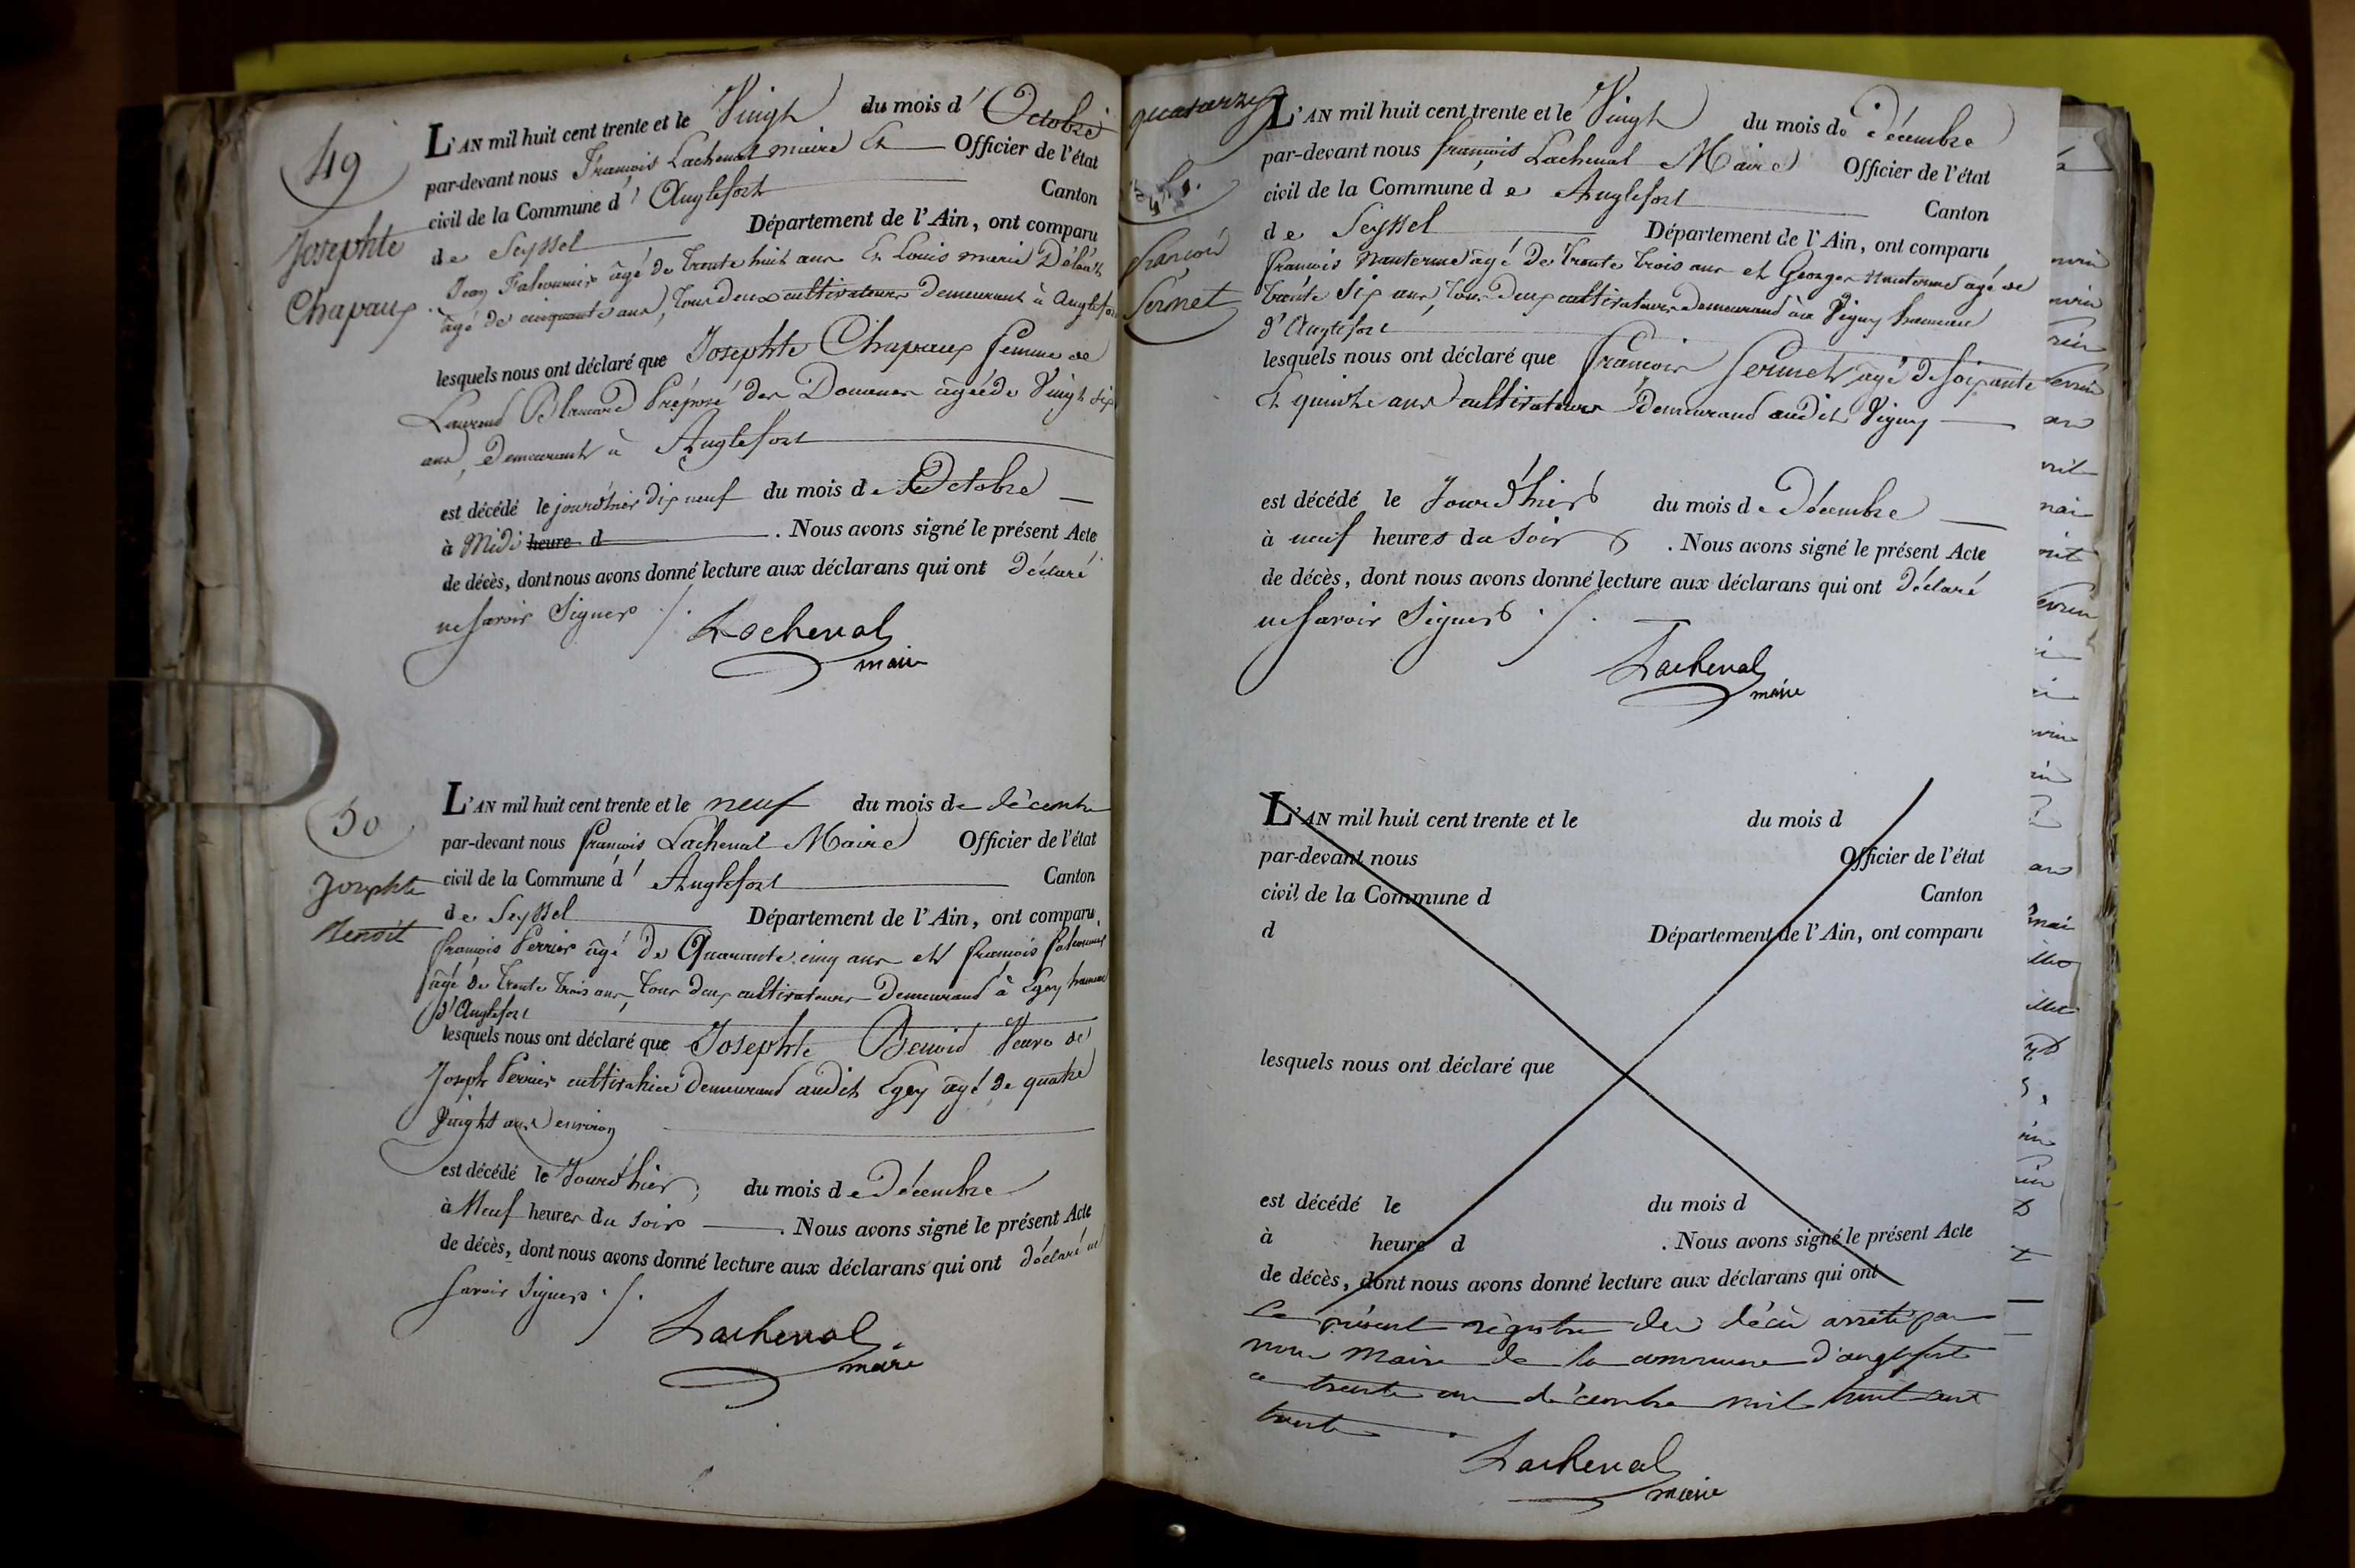 49
Josephte
Chapaux
L'AN mil huit cent trente et le Vingt du mois d' Octobre
par-devant nous François Lachenal maire Et Officier de l'état
civil de la Commune d' Anglefort Canton
de Seyssel Département de l'Ain, ont comparu
Jean Falconnier âgé de trente huit ans Et Louis marie
âgé de cinquante ans, tous deux cultivateurs demeurant à Anglefort
lesquels nous ont déclaré que Josephte Chapaux femme de
Laurend Blancard Préposé des Douanes agée de Vingt six
ans, demeurant à Anglefort
est décédé le jourd'hier dix neuf du mois de Octobre
à Midi heure d . Nous avons signé le présent Acte
de décès, dont nous avons donné lecture aux déclarans qui ont déclaré
ne savoir Signer ./.
Lachenal
maire
50
Josephte
Benoit
L'AN mil huit cent trente et le neuf du mois de décembre
par-devant nous françois Lachenal Maire Officier de l'état
civil de la Commune d' Anglefort Canton
de Seyssel Département de l'Ain, ont comparu
françois Perrier âgé de Quarante cinq ans et françois falconnier
âgé de trente trois ans, tous deux cultivateurs demeurand à Lgey hameau
d'Anglefort
lesquels nous ont déclaré que Josephte Benoid Veuve de
Joseph Perrier cultivatrice demeurand audit Lgey âgé de quatre
Vinght ans environ
est décédé le Jourd'hier, du mois de Décembre
à Neuf heures du soir . Nous avons signé le présent Acte
de décès, dont nous avons donné lecture aux déclarans qui ont déclaré ne
savoir Signer ./.
Lachenal
maire
quatorze
51.
françois
Sermet
L'AN mil huit cent trente et le Vingt du mois de Décembre
par-devant nous françois Lachenal Maire Officier de l'état
civil de la Commune de Anglefort Canton
de Seyssel Département de l'Ain, ont comparu
francois Nanterme âgé de trente trois ans et Georges Nanterme âgé de
trente six ans, tous deux cultivateurs demeurand au Vigny hameau
d'Anglefort
lesquels nous ont déclaré que francois Sermet âgé de soixante
Et quinze ans cultivateur demeurand audit Vigny
est décédé le Jourd'hier du mois de Décembre
à neuf heures du Soir . Nous avons signé le présent Acte
de décès, dont nous avons donné lecture aux déclarans qui ont déclaré
ne savoir Signer ./.
Lachenal
maire
L'AN mil huit cent trente et le du mois d
par-devant nous Officier de l'état
civil de la Commune d Canton
d Département de l'Ain, ont comparu
lesquels nous ont déclaré que
est décédé le du mois d
à heure d . Nous avons signé le présent Acte
de décès, dont nous avons donné lecture aux déclarans qui ont
Le présent régistre des décès arrêté par
nous Maire de la commune d'anglefort
ce trente un décembre mil huit cent
trente.
Lachenal
maire